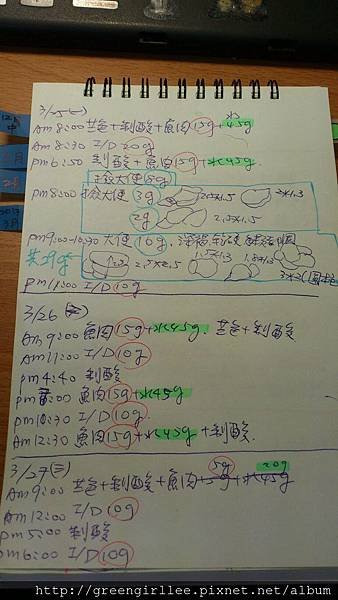 3/25(一)
Am 8:00 芸爸+制酸+魚肉15g+水45g
Am 8:30 I/D 20g
pm 6:50 制酸+魚肉15g+水45g
pm 8:00 大便 3g 2.5×1.5 2×1.3
2g 2.5×1.5
pm 9:00-10:30 大便 16g
共29g 2.5×2.5 1.5×1.3 1.8×1.3
pm 11:00 I/D 10g
3/26(二)
Am 9:00 魚肉15g+水45g. 芸爸+制酸
Am 11:00 I/D 10g
pm 4:40 制酸
pm 8:00 魚肉15g+水45g
pm 10:30 I/D 10g
Am 12:30 魚肉15g+水45g+制酸.
3/27(三) 5g 20g
Am 9:00 芸爸+制酸+魚肉15g+水45g
Am 12:00 I/D 10g
pm 5:00 制酸
pm 6:00 I/D 10g
12月
月
2月
2013
3月
http://greengirllee.pixnet.net/album